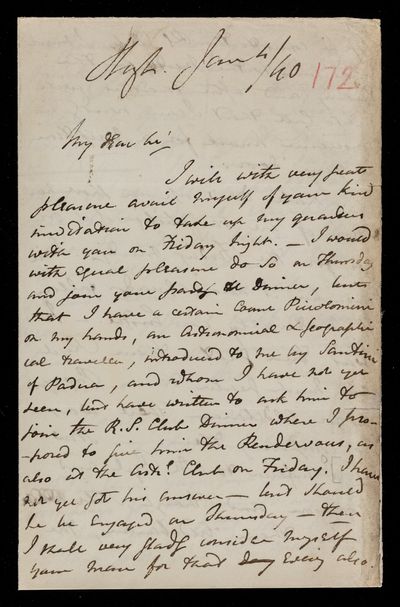 Jan 4/40
172
My dear Sir
I will with very great
pleasure avail myself of your kind
invitation to take up my quarters
with you on Friday Night. — I would
with equal pleasure do so on Thursday
and join your party at Dinner, but
that I have a certain Count Piccolomini
on my hands, an Astronomical & Geographi
cal traveller, introduced to me by Santini
of Padua, and whom I have not yet
seen, but have written to ask him to
join the R.S. Club Dinner where I pro-
-posed to give him the Rendezvous, as
also at the Ast.l Club on Friday. I have
not yet got his answer — but should
he be engaged on Thursday — then
I shall very gladly consider myself
your man for that day Evening also.